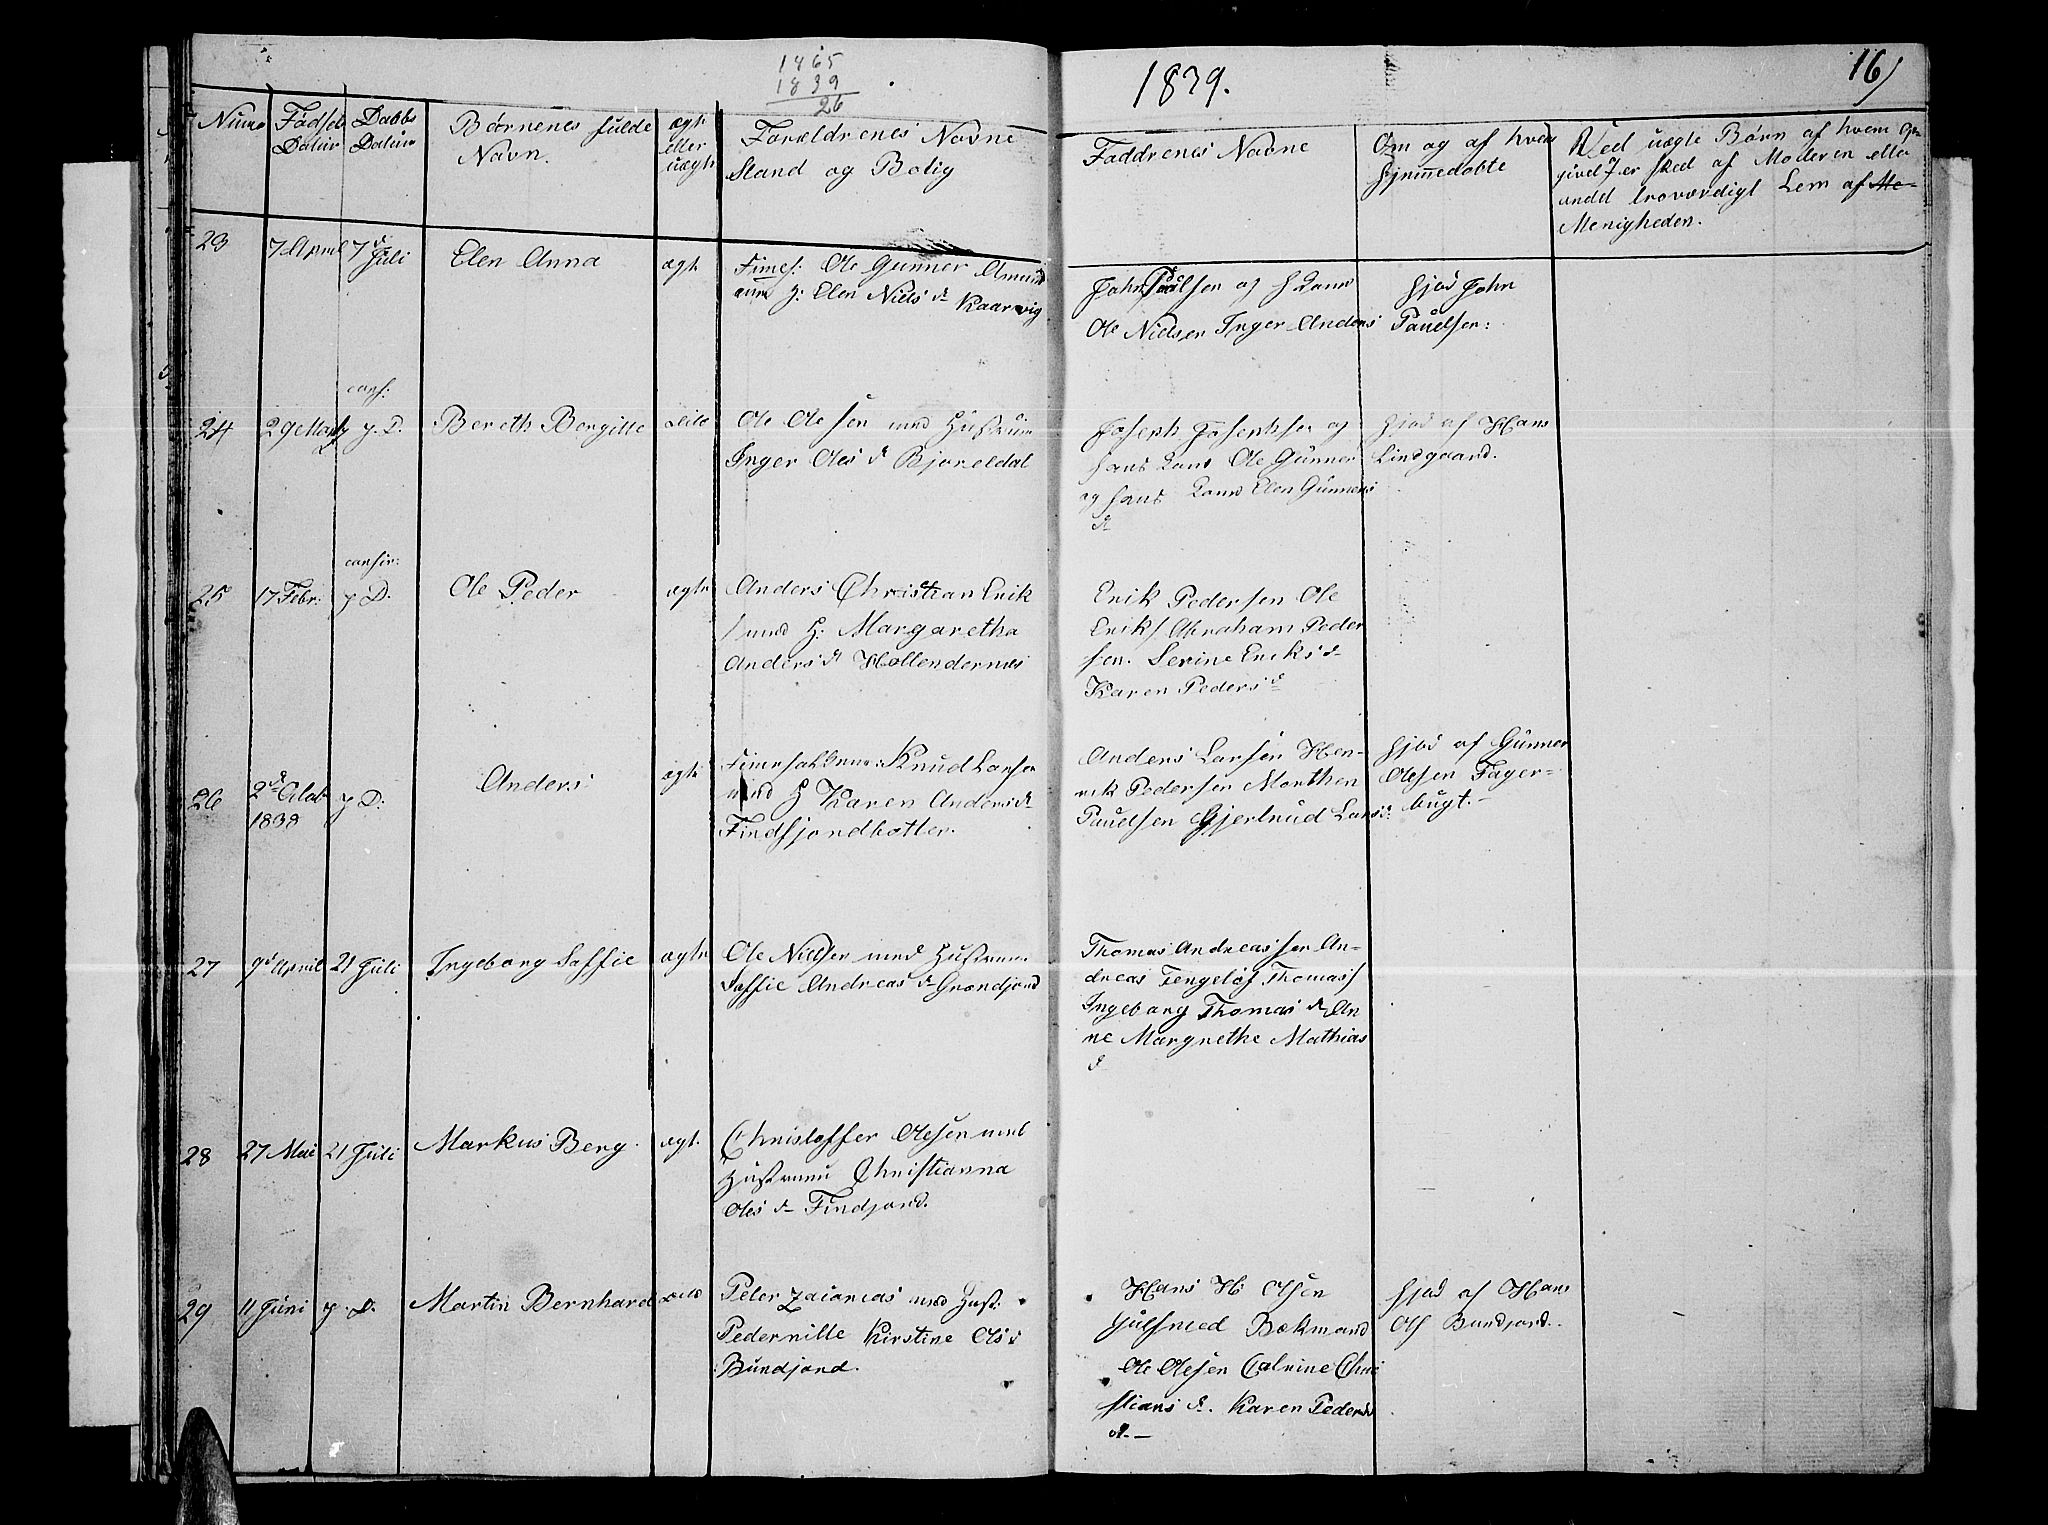 1865
1839
26
1839.
16
Fødsels Daabs
Datum Datum
Børnenes fulde
Navn.
ægte
eller
uægte
Forældrenes Navne
Stand og Bolig
Faddrenes Navne
Om og af hvem
hjemmedøbte
Ved uægte Børn af hvem
er sked af Moderen eller
andet troværdigt Lem af Me-
Menigheden.
23
7 April 7d Juli
Elen Anna
ægte
Ole Gunner
H: Elen Niels d. Kaarvig
John Poulsen og
Ole Nielsen Inger Anders
hjed John
Paulsen:
conf:
24
29 Marti
y. D.
Bereth Bergitte
Ole Olesen med Hustrue
Inger Oles d Bjoreldal
Joseph Josephsen og
hans Kone Ole Gunner
og hans Kone Elen Gunners
d
hjed af Hans
Lindgaard.
confir:
25
17 Febr:
y D.
Ole Peder
ægte
Anders Christian Erik
s med H: Margaretha
Anders d Hollendernæs
Erik Pedersen Ole
Eriks Abraham Peder
sen. Serine Eriks d
Karen Peders d
26
1838
y D:
Anders
ægte
Knud Larsen
med H Karen Anders d
Findfjordbotten.
Anders Larsen Hen-
rik Pedersen Morthen
Paulsen Gjertrud Lars d:
hjed af Gunner
Olesen Fager-
bugt.-
27
9d April 21 Juli
Ingeborg Saffie
ægte
Ole Nielsen med Hustrue
Saffie Andreas d Grændjord
Thomas Andreassen An-
dreas Fengeløf Thomas
Ingeborg Thomas d An
ne Margrethe Mathias
d
28
27 Mai 21 Juli
Markus Berg.
ægt.
Christoffer Olesen med
Hustrue Christianna
Oles d Findjord.
29
11 Juni y. D.
Martin Bernhard
Peter Zaiarias med Hust:
Pedernille Kirstine Ols d
Bundjord.
Hans H: Olsen
Bækmand
Ole Olesen Catrine Chri
stians d. Karen Peders
d.-
hjed af Hans
Ols Bundjord.